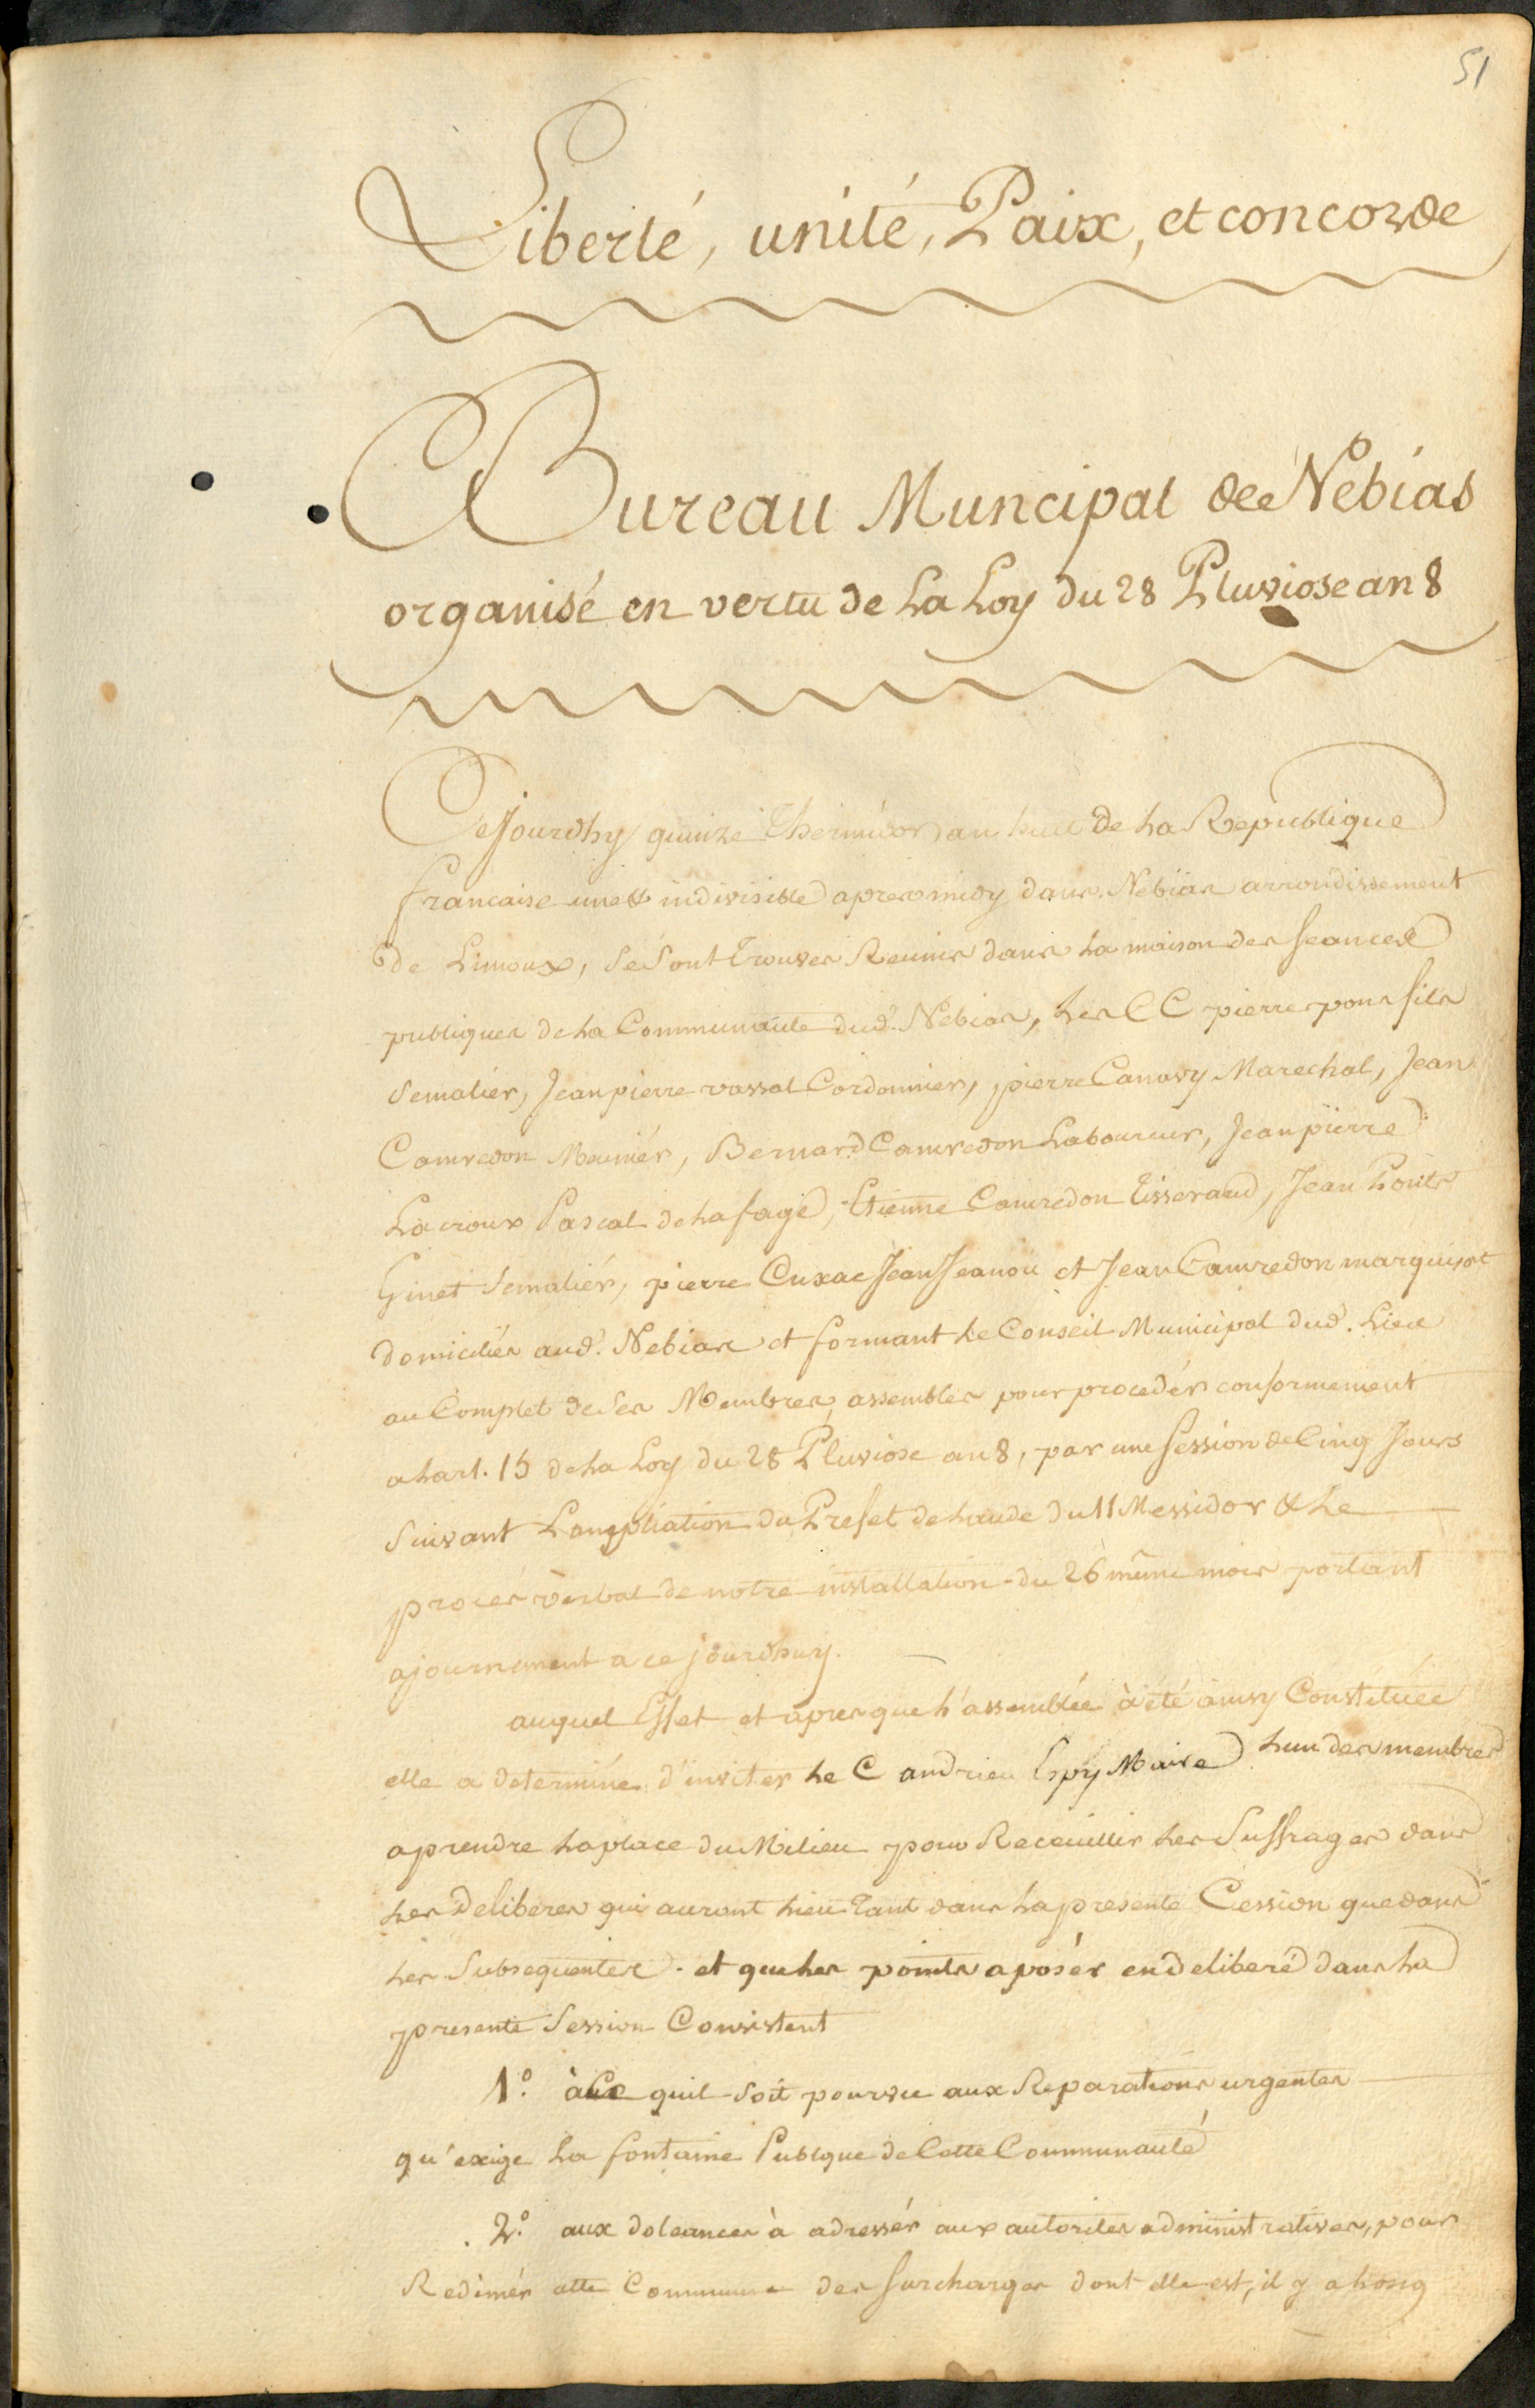 51
Liberté, unité, Paix, et concorde
Bureau Muncipal de Nebias
organisé en vertu de La Loy du 28 Pluviose an 8
Cejourdhy quinze Thermidor an huit de La Republique
francaise une & indivisible apres midy dans Nebias arrondissement
de Limoux, se sont trouves Reunis dans La maison des seances
publiques de La Communauté dud. Nebias, Les CC pierre pons fils
semalier, Jean pierre vassal Cordonnier, pierre Canavy Marechal, Jean
Camredon Meunier, Bernard Camredon Laboureur, Jean pierre
Lacroux Pascal de Lafage, Etienne Camredon Tisserand, Jean Louis
Ginet semalier, pierre Cuxac Jean Jeanou et Jean Camredon marquisat
domiciliés aud. Nebias et formant Le Conseil Municipal dud. Lieu
au Complet de ses Membres, assembles pour proceder conformement
a Lart. 15 de La Loy du 28 Pluviose an 8, par une session de Cinq Jours
suivant Lampliation du Prefet de Laude du 11 Messidor & Le
procés verbal de notre installation du 26 même mois portant
ajournement a ce jourdhuy.
auquel Effet et apres que L'assemblée à été ainsy Constituée
elle a determiné d'inviter Le C andrieu Espy Maire Lun des membres
aprendre La place du Milieu pour Receuillir Les Suffrages dans
Les Deliberes qui auront Lieu Tant dans La presente Cession que dans
Les Subsequentes. et que Les points aposér en deliberé dans La
presente Session Consistent
1.° à Ce quil soit pourvu aux Reparations urgentes
qu'exige La fontaine Publque de Cette Communauté
2.° aux doleances à adressér aux autorites administratives, pour
Redimér Cette Commune des surcharges dont elle est, il y a Long